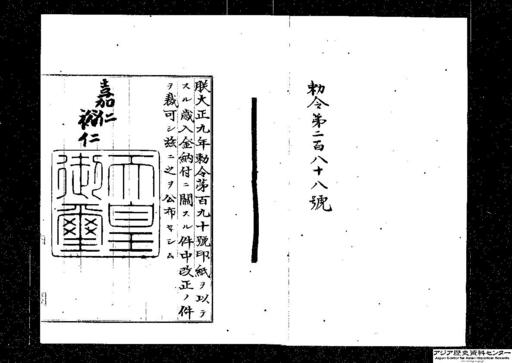 勅令第二百八十八號
朕大正九年勅令第百九十號印紙ヲ以テ
スル歳入金納付ニ關スル件中改正ノ件
ヲ裁可シ茲ニ之ヲ公布セシム
嘉仁
裕仁
天皇
御璽
アジア歴史資料センター
Japan Center for Asian Historical Records